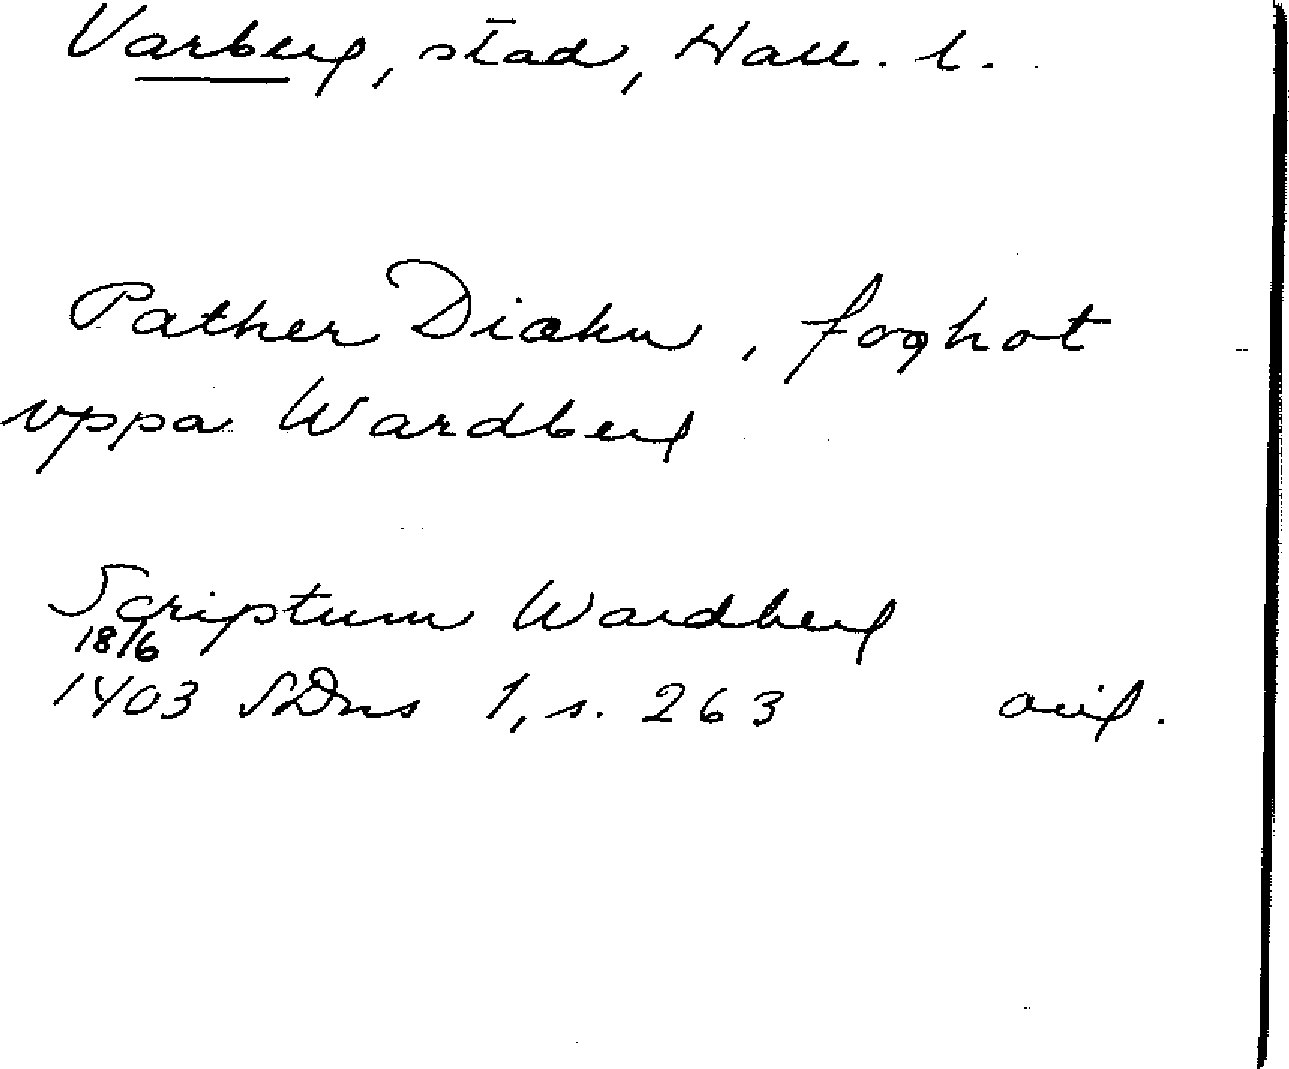 Varberg, stad, Hall. l.
Pather Diækn, foghot
vppa Wardberg
Scriptum Wardberg
18/6
1403 SDns 1, s. 263 orig.